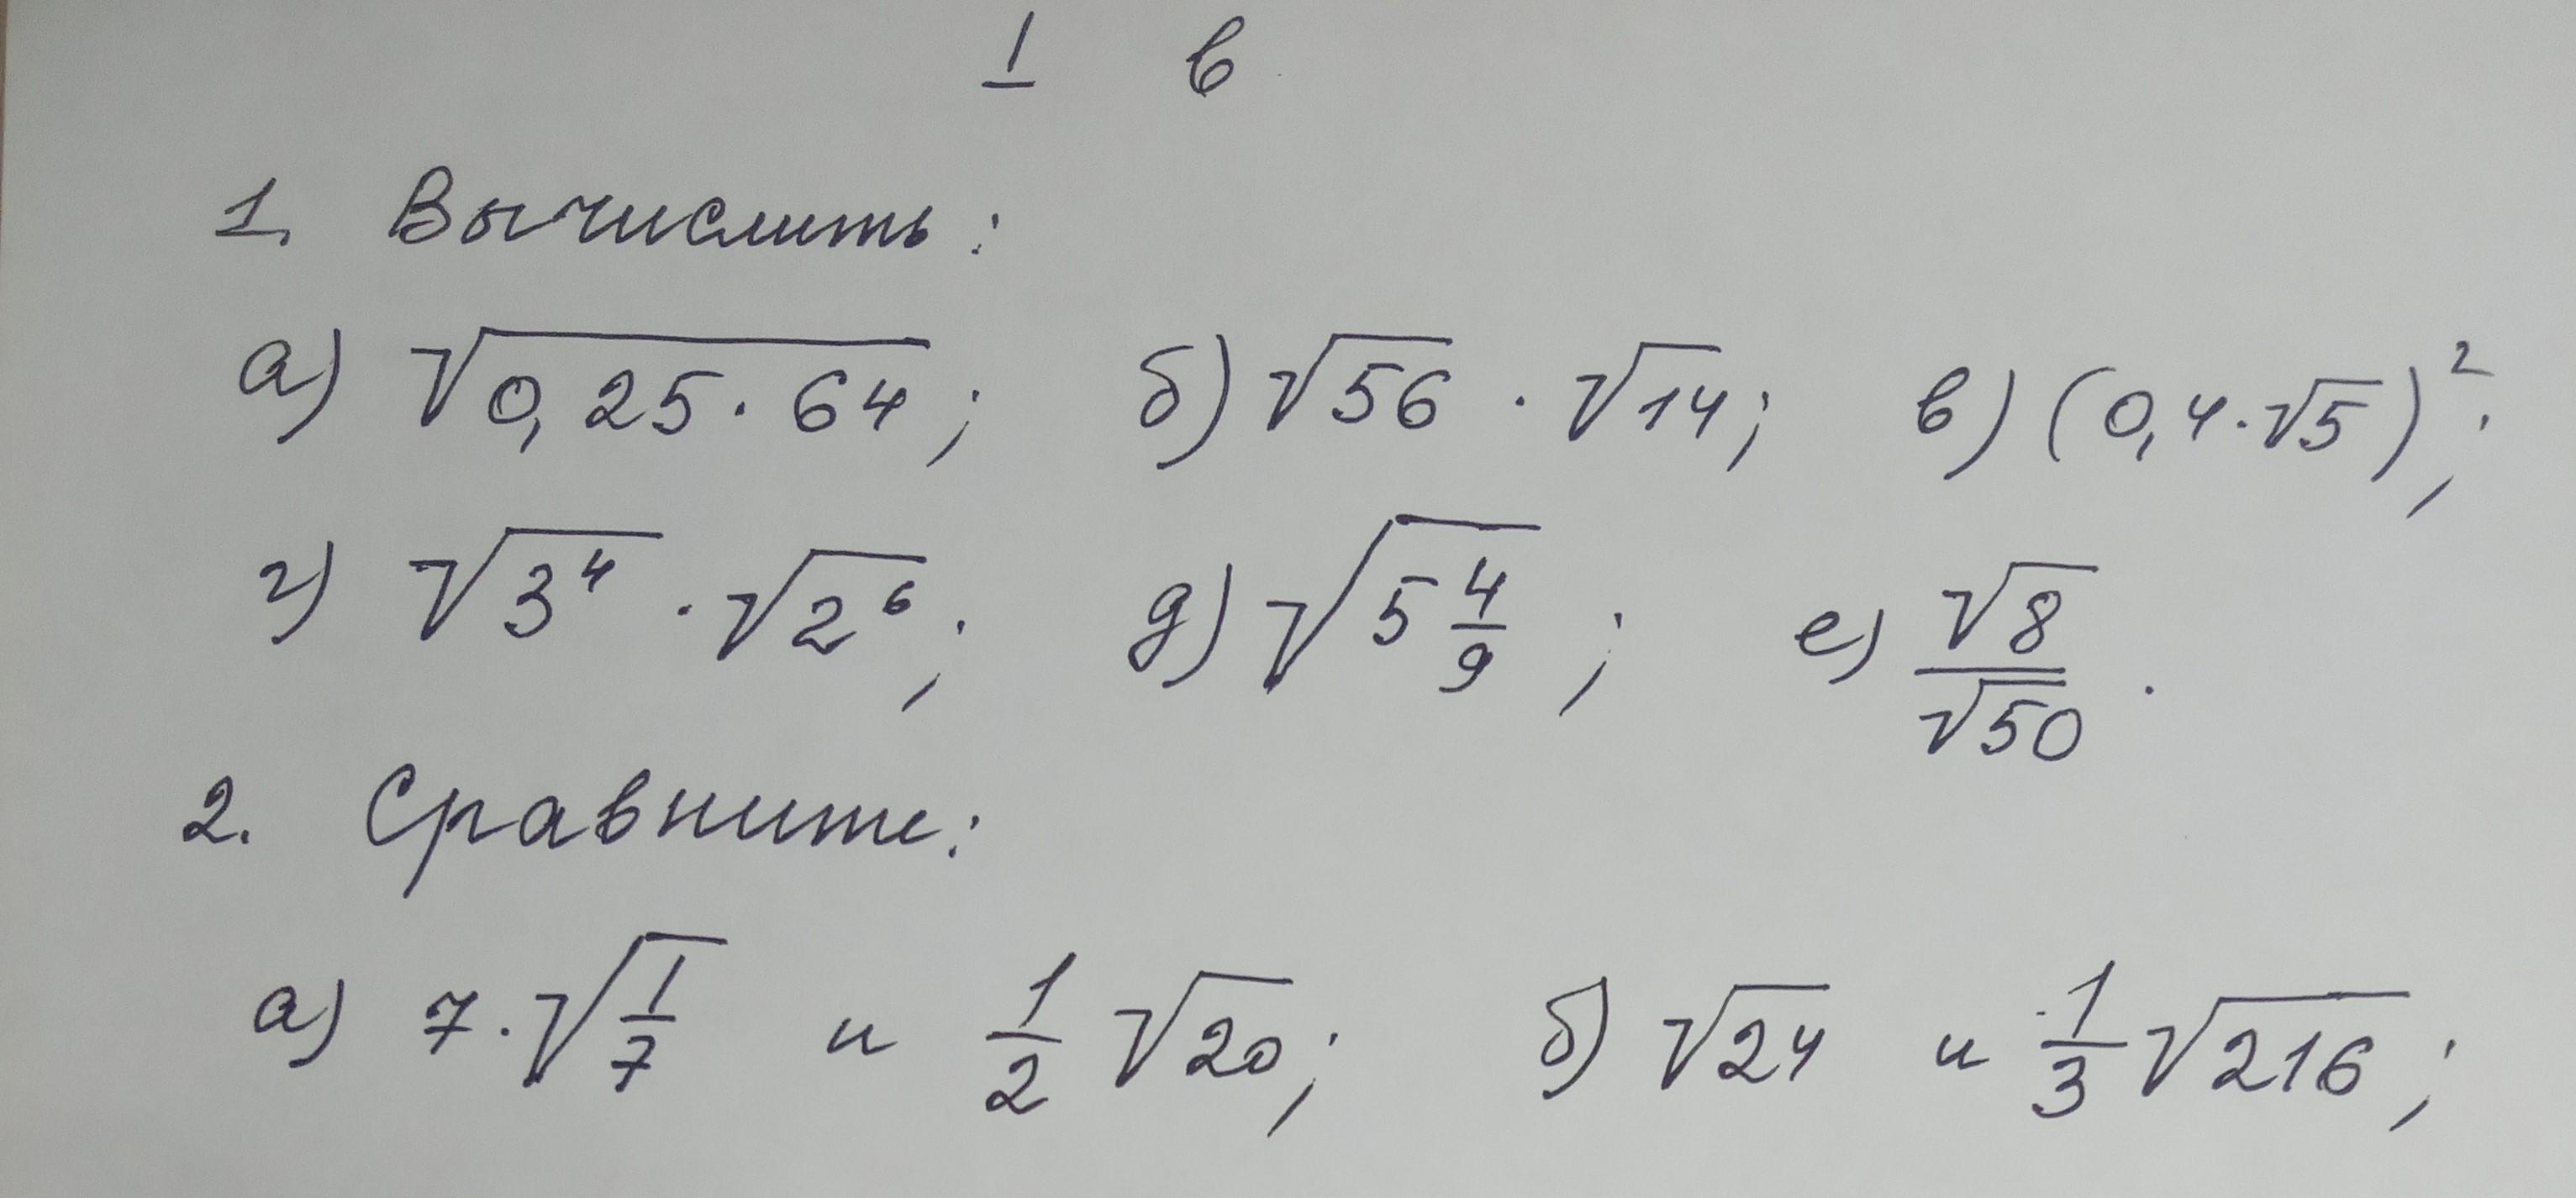 I в
1. Вычислить:
а) √(0,25·64); б) √56 · √14; в) (0,4·√5)²;
г) √(3⁴) · √(2⁶); д) √(5 4/9); е) √8/√50.
2. Сравните:
а) 7·√(1/7) и 1/2 √20; б) √24 и 1/3 √216;